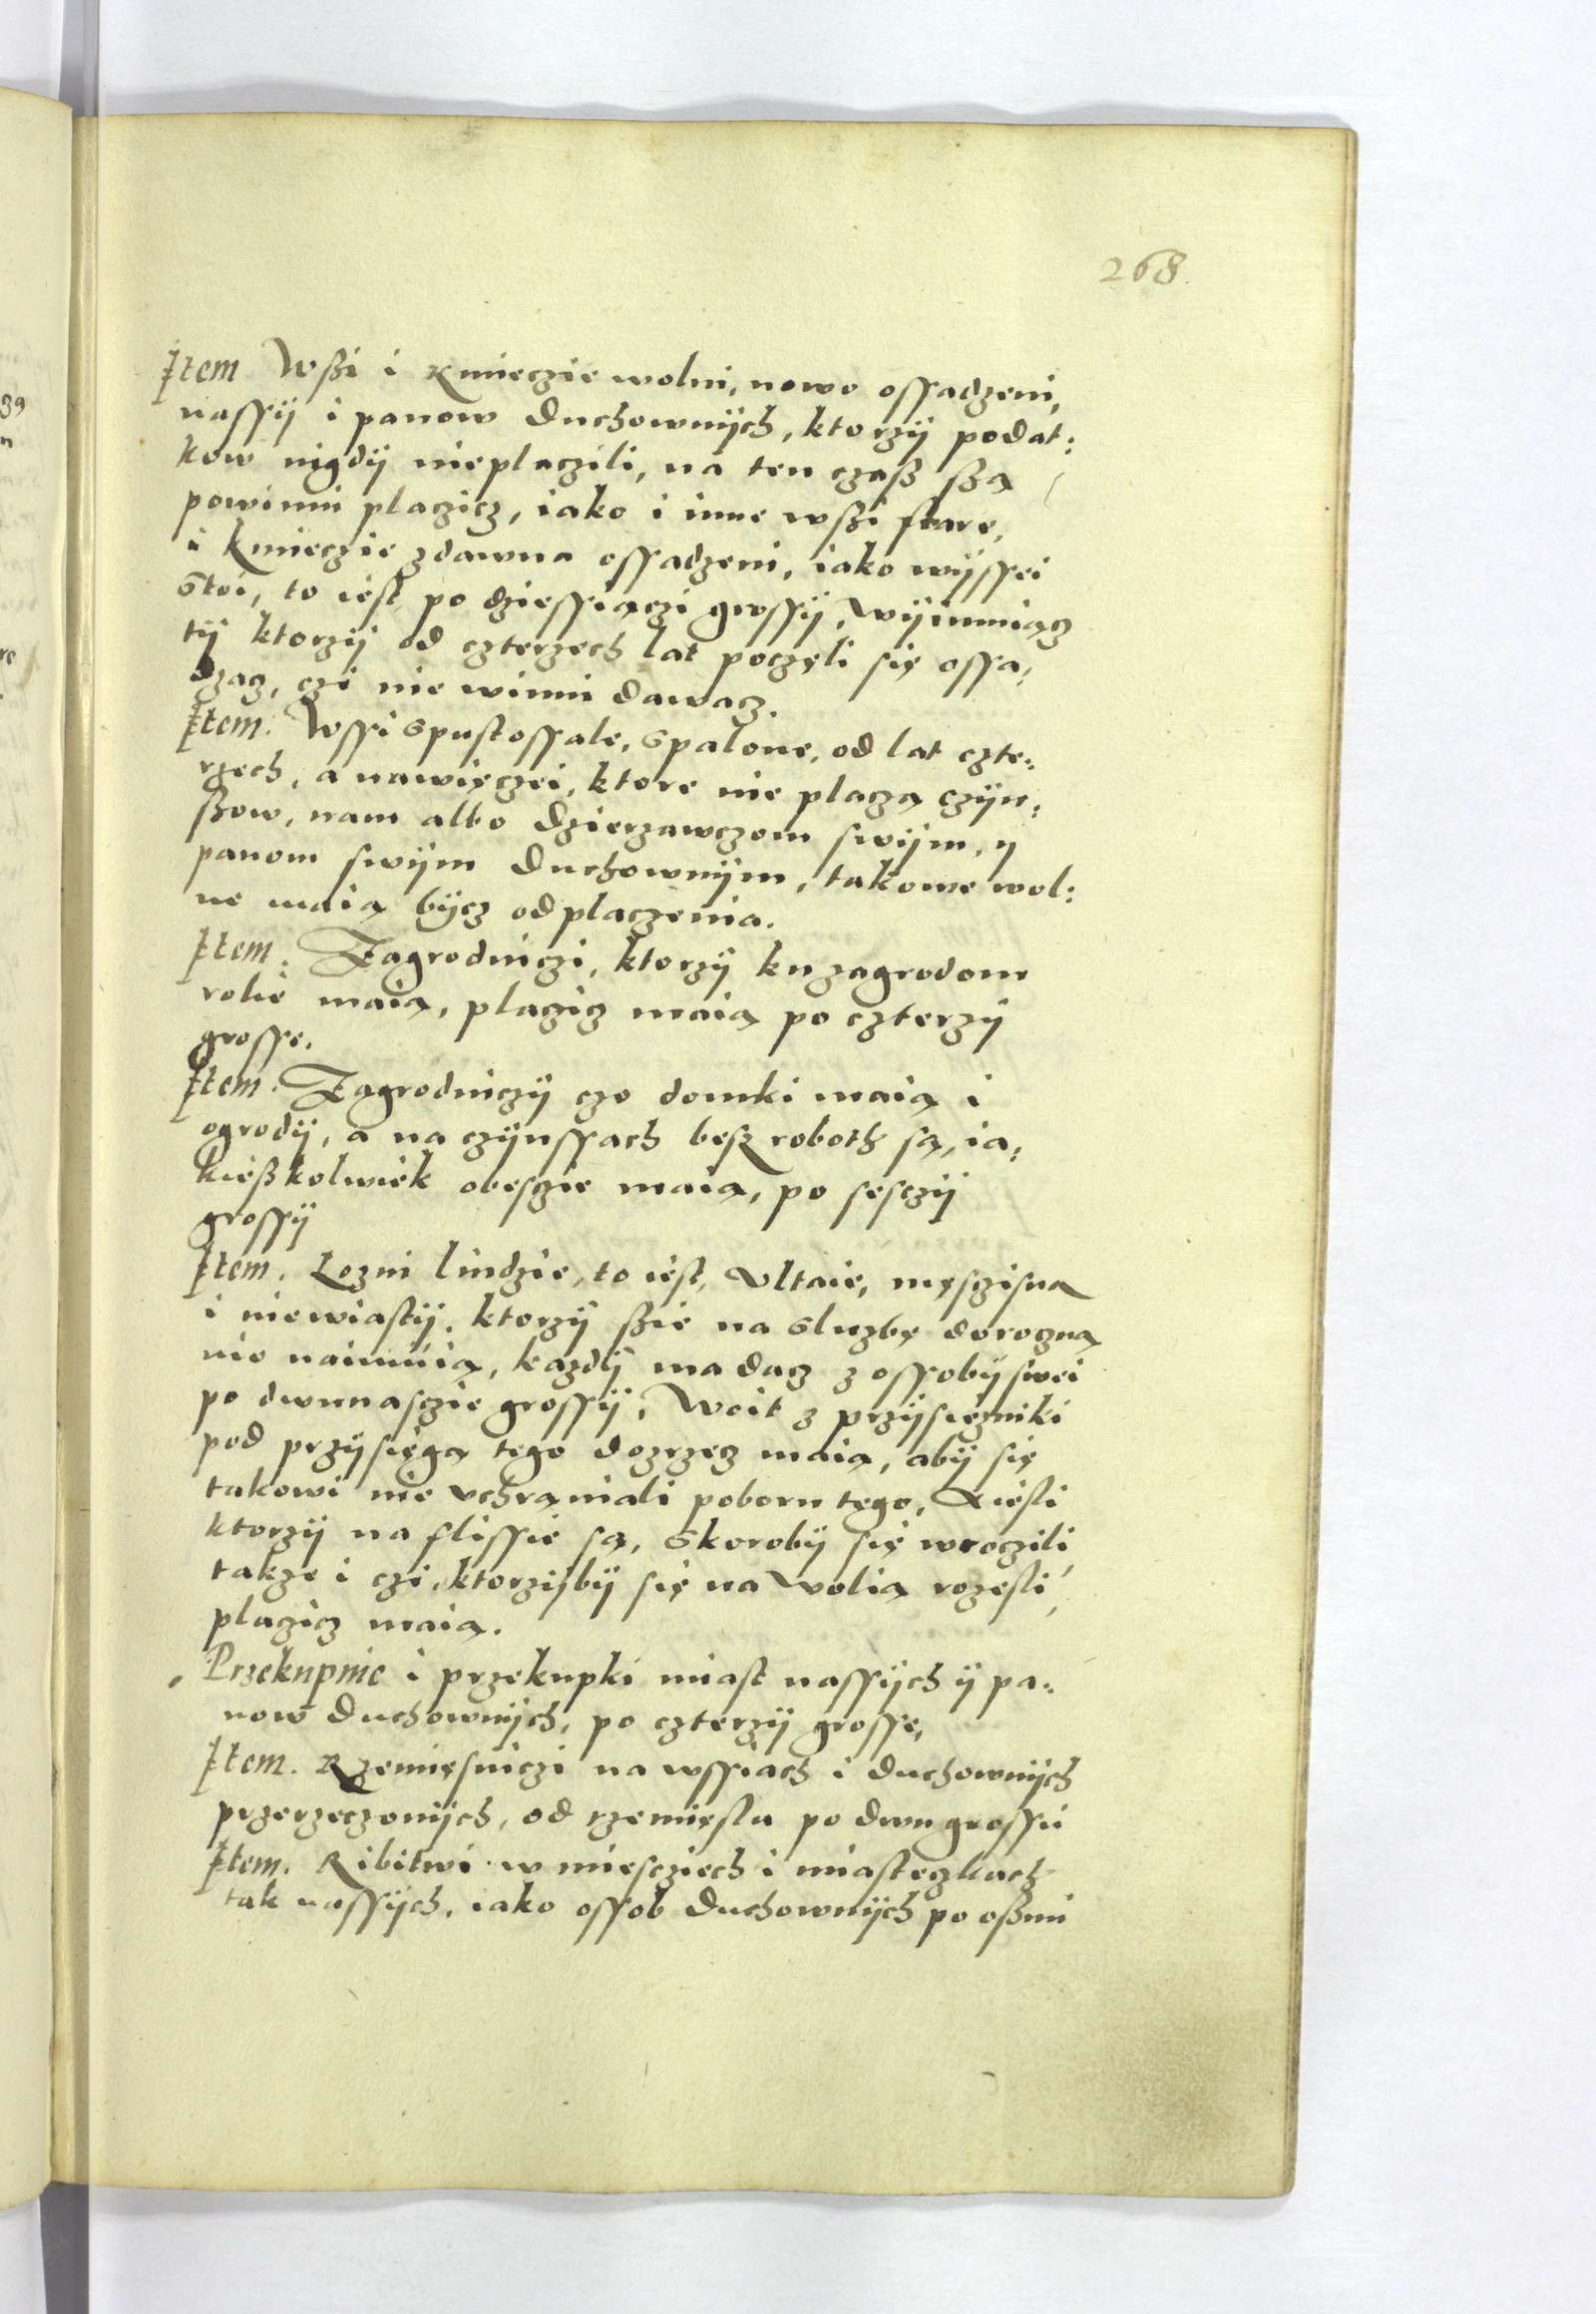 268.
Item Wßi i Kmieczie wolni, nowo ossadzeni,
nassÿ i panow Duchownÿch, ktorzÿ podat:
kow nigdÿ nieplaczili, na ten czaß ßą
powinni placzicz, iako i inne wßi stare,
i Kmieczie zdawna ossadzeni, iako wÿssei
stoi, to iest po dziessiączi grossÿ, Wÿimuiącz
tÿ ktorzÿ od czterzech lat poczęli się ossa:
dzacz, czi nie winni dawacz.
Item. Wssi spustossale, spalone, od lat czte:
rzech, a nawięczei, ktore nie placzą czÿn:
ßow, nam albo dzierzawczom swÿm, y
panom swÿm Duchownÿm, takowe wol:
ne maią bÿcz od placzenia.
Item. Zagrodniczi, ktorzÿ ku zagrodom
rolie maią, placzicz maią po czterzÿ
grosse.
Item. Zagrodniczÿ czo domki maią i
ogrodÿ, a na czÿnssach beß roboth są, ia:
kießkolwiek obesczie maią, po sesczÿ
grossÿ
Item. Lozni liudzie, to iest, Vltaie, męsczisna
i niewiastÿ, ktorzÿ ßie na sluzbę doroczną
nie naimuią, kazdÿ ma dacz z ossobÿ swei
po dwunasczie grossÿ, Woit z przÿsięzniki
pod przÿsięgą tego dozrzecz maią, abÿ się
takowi nie vchraniali poboru tego, A iesli
ktorzÿ na flissie są, skorobÿ się wroczili,
takze i czi, ktorzÿbÿ się na Wolią rozesli,
placzicz maią.
Przekupnie i przekupki miast nassÿch ÿ pa:
now Duchownÿch, po czterzÿ grosse,
Item. Rzemięsniczi na wssiach i duchownÿch
przerzeczonÿch, od rzemięsla po dwu grossu
Item. Ribitwi w miescziech i miasteczkach
tak nassÿch, iako ossob Duchownÿch po oßmi